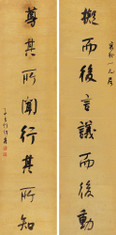 擬而後言議而後動
尊其所聞行其所知